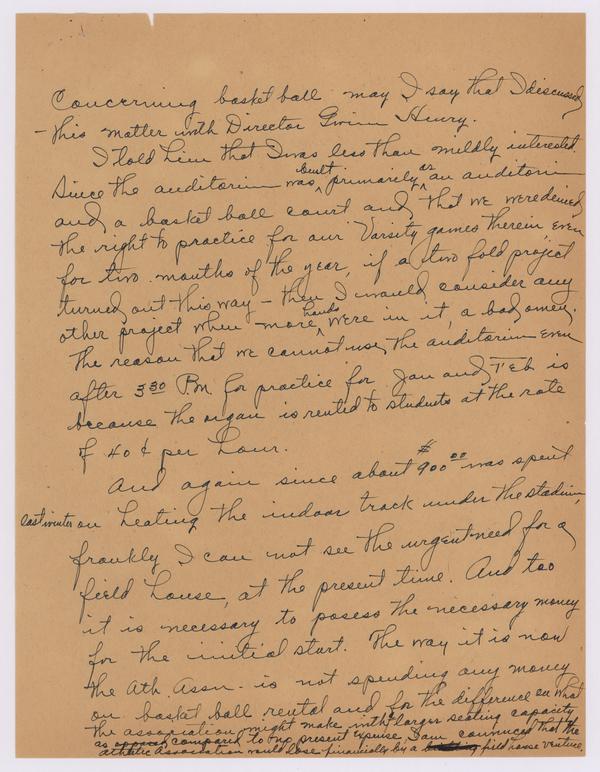 Concerning basket ball may I say that I discussed
this matter with Director Gwinn Henry.
I told him that I was less than mildly interested.
Since the auditorium was built primarily as an auditorium
and a basket ball court and that we were denied
the right to practice for our Varsity games therein even
for two months of the year, if a two fold project
turned out this way - then I would consider any
other project when more hands were in it, a bad omen.
The reason that we cannot use the auditorium even
after 3:30 P.M. for practice for Jan and Feb is
because the organ is rented to students at the rate
of 40¢ per hour.
And again since about $900.00 was spent
last winter on heating the indoor track under the stadium,
frankly I can not see the urgent need for a
field house, at the present time. And too
it is necessary to posess the necessary money
for the initial start. The way it is now
the Ath. Assn. is not spending any money
on basket ball rental and for the difference on what
the association might make with larger seating capacity
as compared to no present expense I am convinced that the
athletic Association would lose financially by a field house venture.